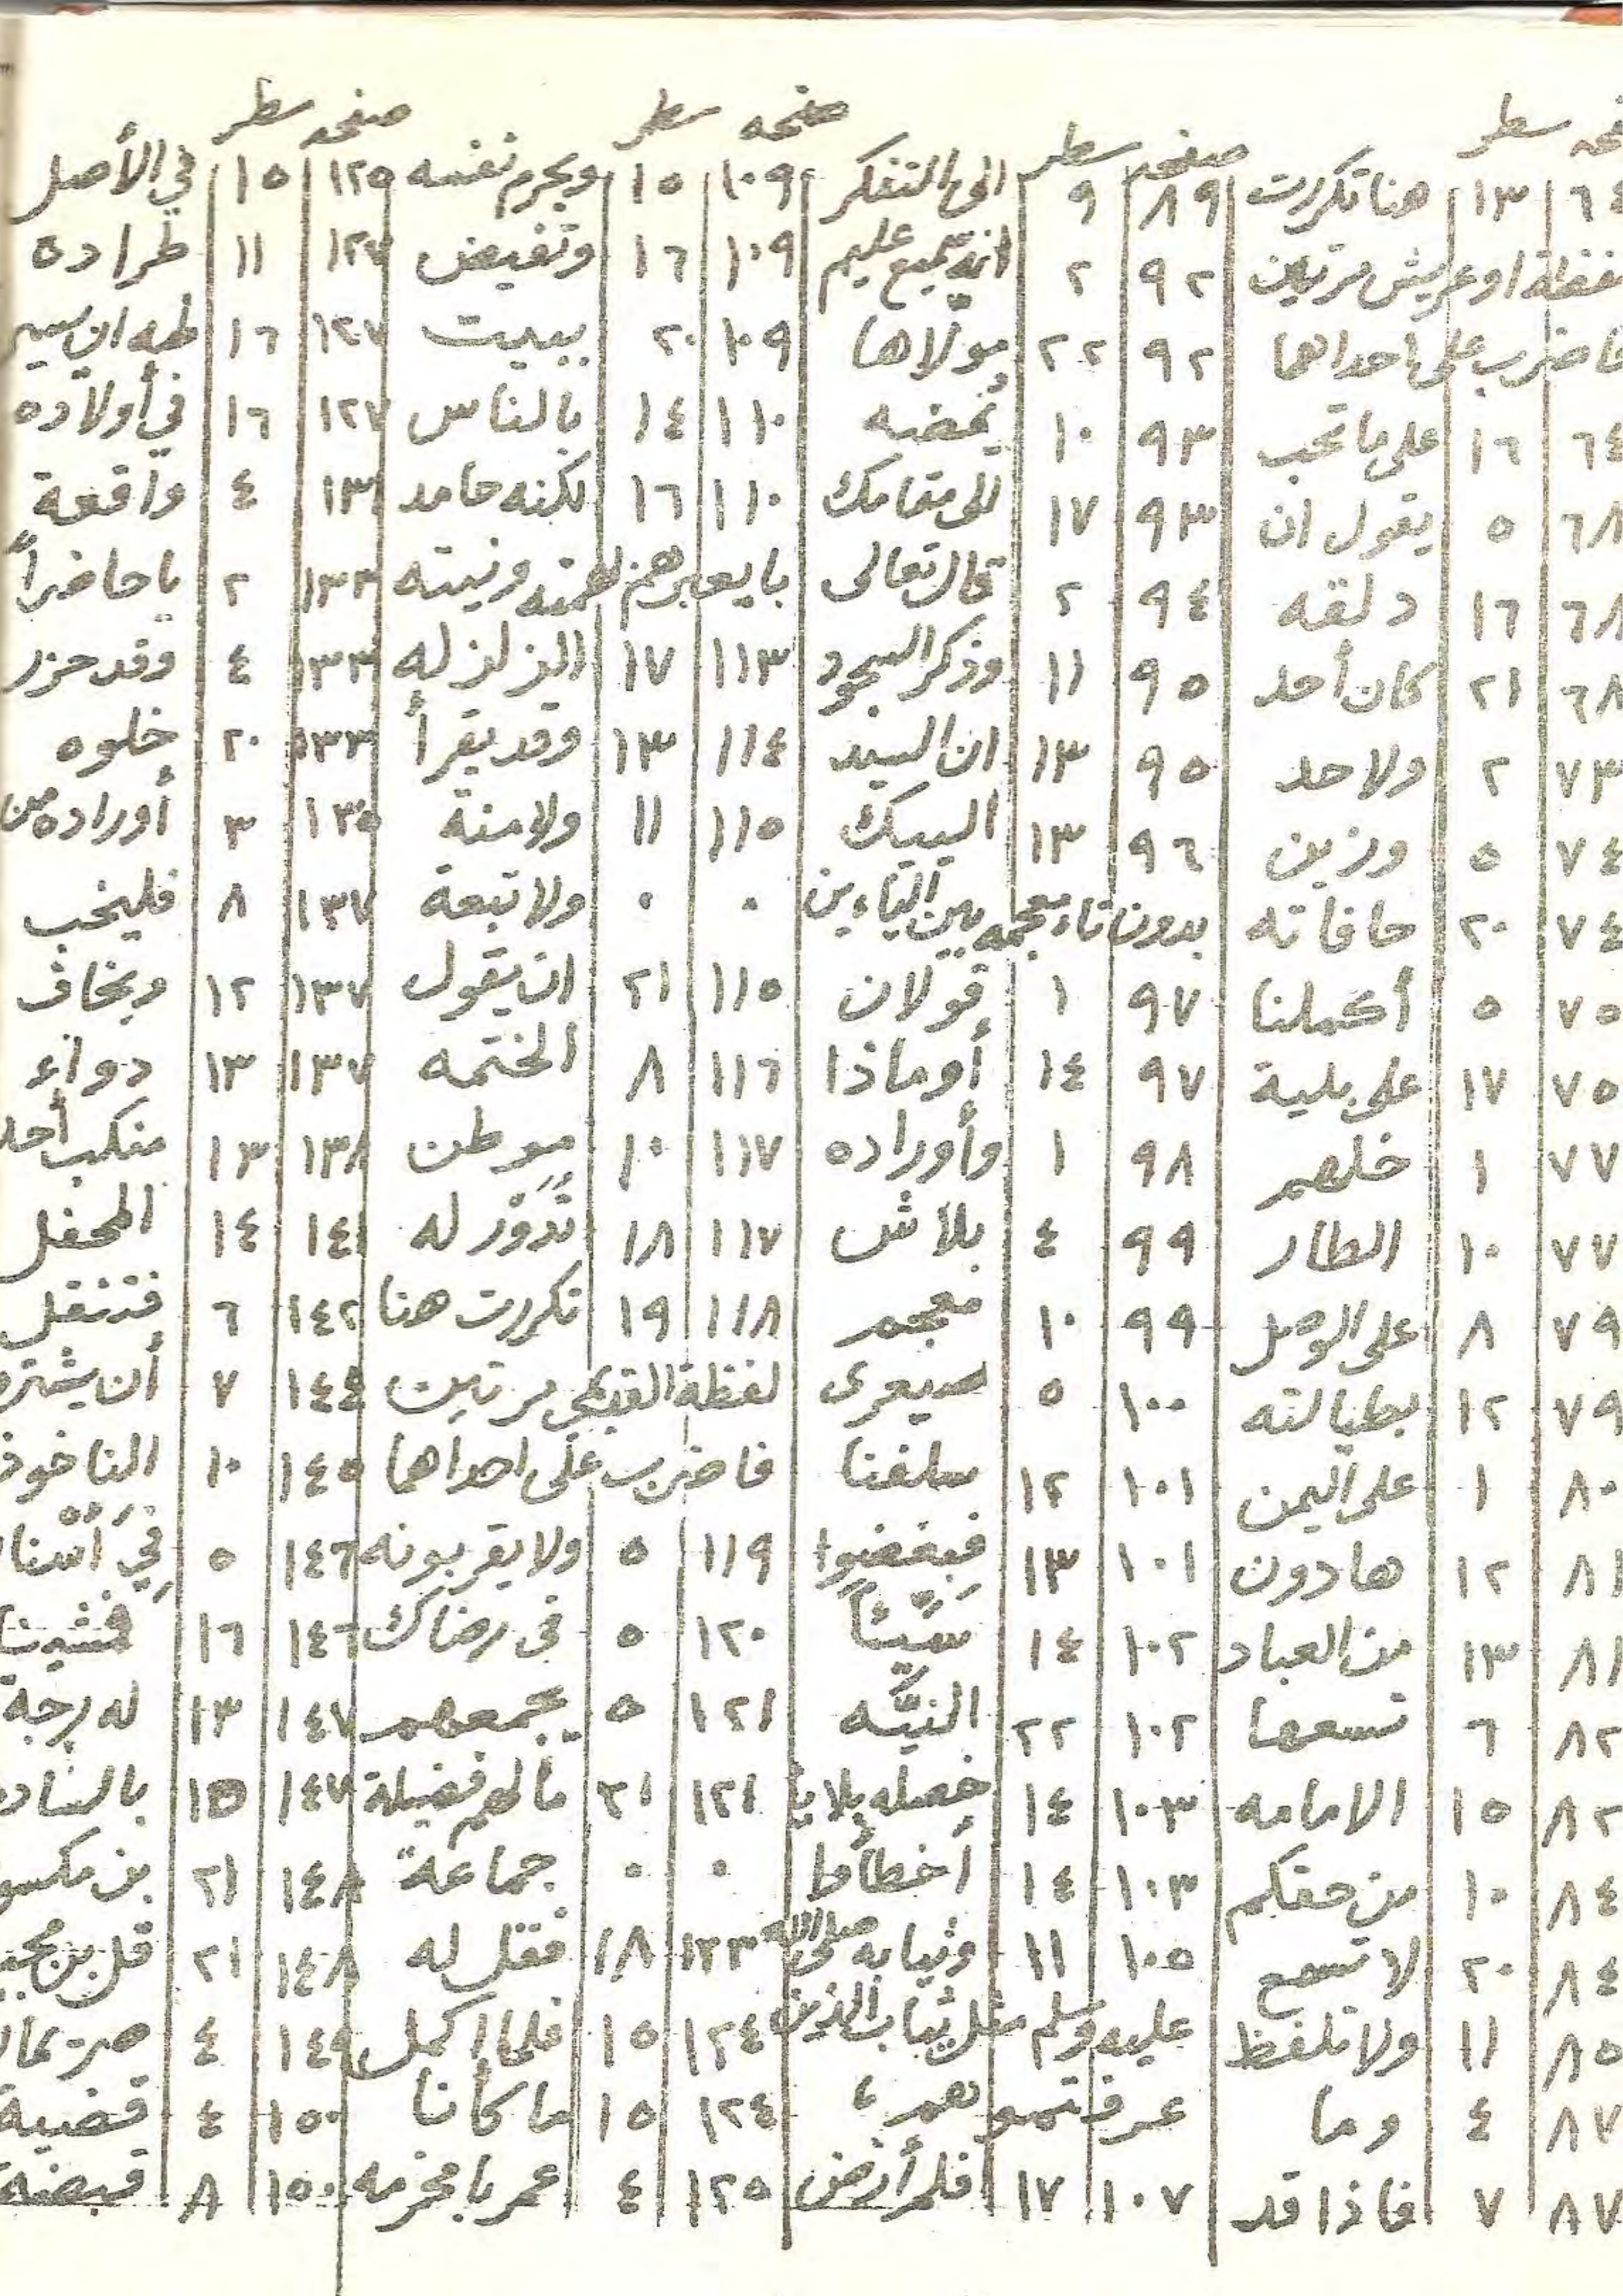 سطر
٦٤ ١٣ هنا تكررت
او عريش مرتين
فاضرب على احداهما
٦٤ ١٦ على ما تحب
٦٨ ٥ يقول ان
٦٨ ١٦ دلقه
٦٨ ٢١ كان أحد
٧٣ ٢ ولاحد
٧٤ ٥ وزين
٧٤ ٢٠ حافاته
٧٥ ٥ أكملنا
٧٥ ١٧ على بلية
٧٧ ١ خلهم
٧٧ ١٠ الطار
٧٩ ٨ على الوصل
٧٩ ١٢ بطيالته
٨٠ ١ على اليمن
٨١ ١٢ هادون
٨١ ١٣ من العباد
٨٢ ٦ تسعها
٨٢ ١٥ الامامه
٨٤ ١٠ من حقكم
٨٤ ٢٠ لا تسمع
٨٥ ١١ ولا تلفظ
٨٧ ٤ وما
٨٧ ٧ فاذا قد
صفحه سطر
٨٩ ٩ الى التفكر
٩٢ ٢ انه سميع عليم
٩٢ ٢٢ مولاها
٩٣ ١٠ نحضه
٩٣ ١٧ الى مقامك
٩٤ ٢ قال تعالى
٩٥ ١١ وذكر السجود
٩٥ ١٣ ان السيد
٩٦ ١٣ البيك
بدون تاء معجمه بين الياءين
٩٧ ١ قولان
٩٧ ١٤ أو ماذا
٩٨ ١ وأوراده
٩٩ ٤ بلاش
٩٩ ١٠ معجم
١٠٠ ٥ صيعرى
١٠١ ١٢ سلفنا
١٠١ ١٣ فبغضوا
١٠٢ ١٤ سيّئاً
١٠٢ ٢٢ النيّه
١٠٣ ١٤ خصله بلا يا
١٠٣ ١٤ أخطأوا
١٠٥ ١١ وثيابه صلى الله
عليه وسلم مثل ثياب الذين
عرفتموهم
١٠٧ ١٧ فلم أرض
صفحه سطر
١٠٩ ١٥ ويحرم نفسه
١٠٩ ١٦ وتفيض
١٠٩ ٢٠ ببيت
١١٠ ١٤ بالناس
١١٠ ١٦ لكنه حامد
ونيته
١١٣ ١٧ الزلزله
١١٤ ١٣ وقد يقرأ
١١٥ ١١ ولا منة
٠ ٠ ولا تبعة
١١٥ ٢١ ان يقول
١١٦ ٨ الختمه
١١٧ ١٠ موطن
١١٧ ١٨ تدور له
١١٨ ١٩ تكررت هنا
لفظة القديمي مرتين
فاضرب على احداهما
١١٩ ٥ ولا يقربونه
١٢٠ ٥ فى رضاك
١٢١ ٥ يجمعهم
١٢١ ٢١ مالهم فضيلة
٠ ٠ جماعة
١٢٣ ١٨ فقل له
١٢٤ ١٥ فلما اكمل
١٢٤ ١٥ ما كأنا
١٢٥ ٤ عمر بامخرمه
صفحه سطر
١٢٥ ١٥ في الأصل
١٢٧ ١١ طراده
١٢٧ ١٦ طه ان سير
١٢٧ ١٦ في أولاده
١٣١ ٤ واقعة
١٣٣ ٢ يا حاضراً
١٣٣ ٤ وقد حزر
١٣٣ ٢٠ خلوه
١٣٥ ٣ أوراده من
١٣٧ ٨ فليخب
١٣٧ ١٢ ويخاف
١٣٧ ١٣ دواء
١٣٨ ١٣ منكب أحد
١٤١ ١٤ المحفل
١٤٢ ٦ فتنقل
١٤٤ ٧ أن يشتر
١٤٥ ١٠ الناخوذ
١٤٦ ٥ في أثنا
١٤٦ ١٦
١٤٧ ١٣ له رجة
١٤٧ ١٥
١٤٨ ٢١ بن مكسو
١٤٨ ٢١
١٤٩ ٤
١٥٠ ٤ قضية
١٥٠ ٨ قبضة